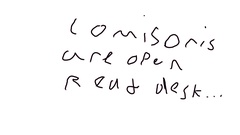 comisonis
are open
Read desk...